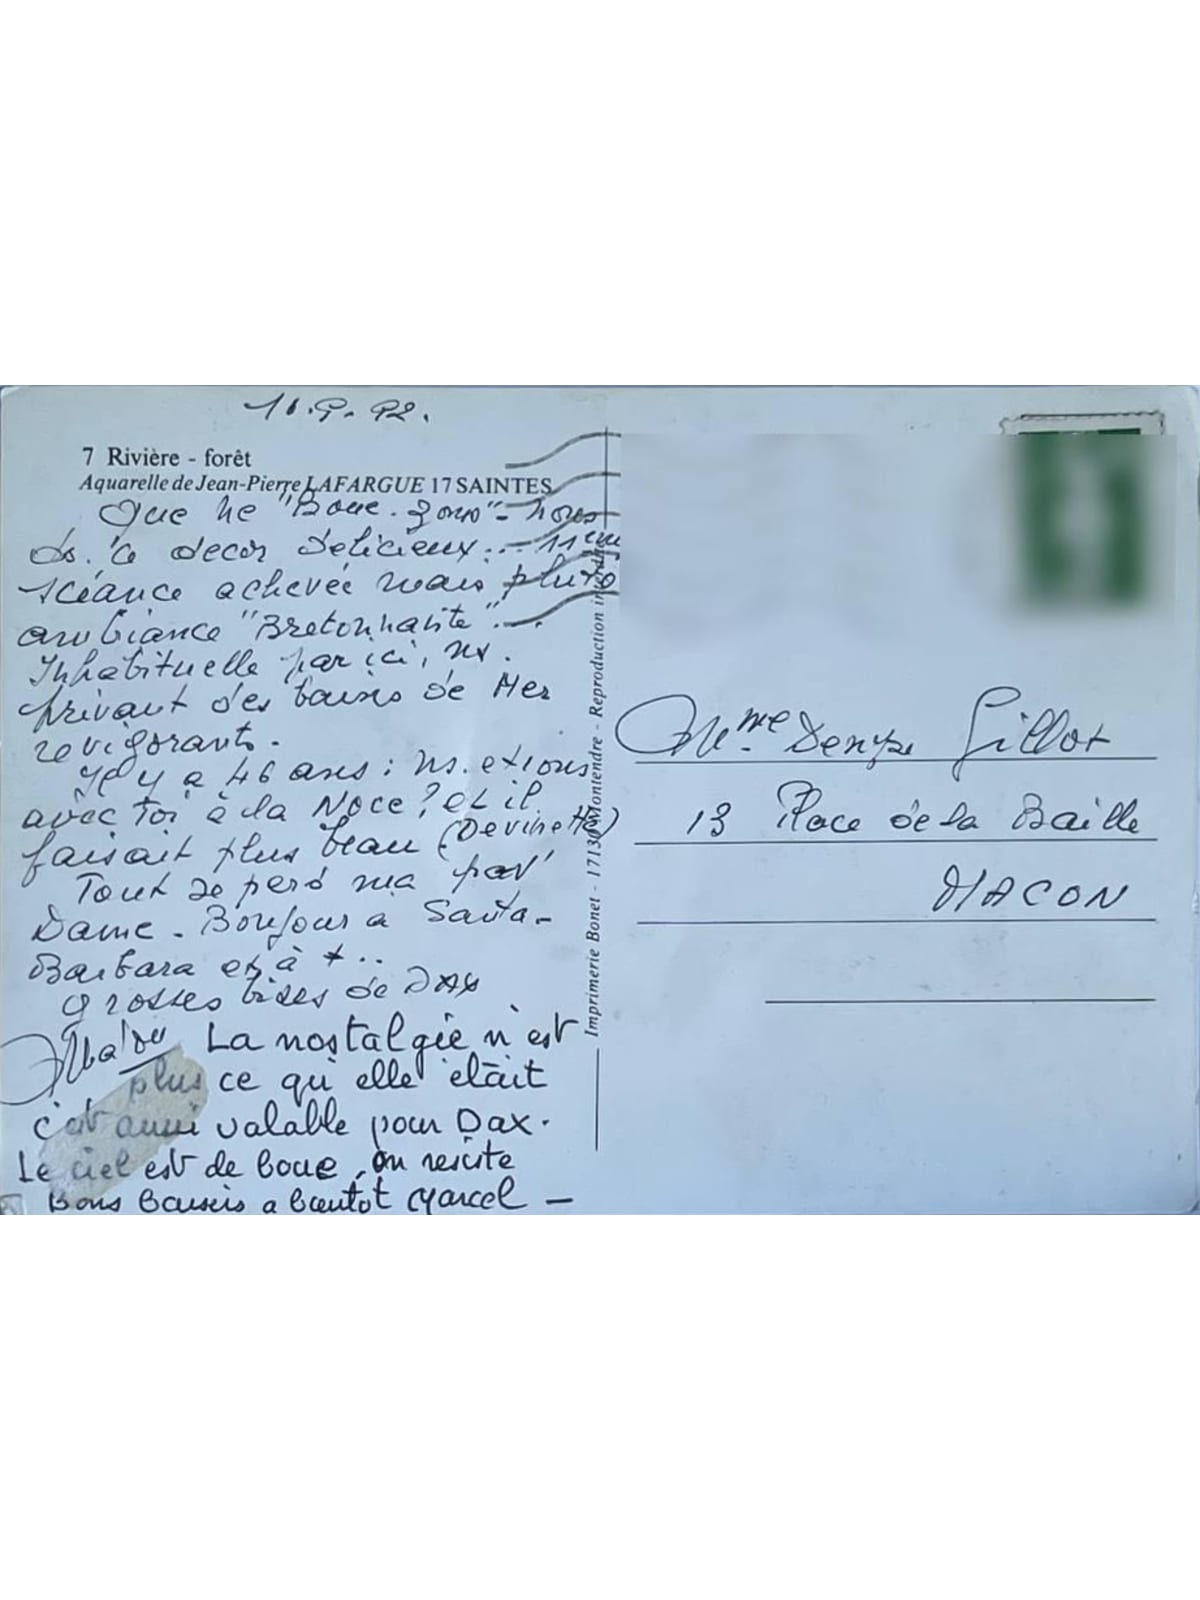 11.9.92.
7 Rivière - forêt
Aquarelle de Jean-Pierre LAFARGUE 17 SAINTES
Que ne "Boue-gons" - nous
ds. ce décor délicieux... 11ème
scéance achevée mais plutôt
ambiance "Bretonnante"...
Inhabituelle par ici, ns.
privant des bains de Mer
revigorants.
Il y a 46 ans : ns. etions
avec Toi à la Noce ? et il
faisait plus beau (Devinette)
Tout se perd ma pov'
Dame. Boujour a Santa-
Barbara et à +..
grosses bises de DAX
La nostalgie n'est
plus ce qu'elle était
c'est aussi valable pour Dax.
Le ciel est de boue, on resiste
Bons baisers a bientot Marcel -
Imprimerie Bonet - 17130 Montendre - Reproduction interdite
Mme Denyse Gillot
13 Place de la Baille
MACON